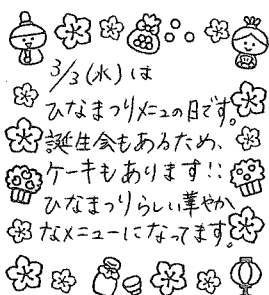 3/3(水)は
ひなまつりメニューの日です。
誕生会もあるため、
ケーキもあります!!
ひなまつりらしい華やか
なメニューになってます。